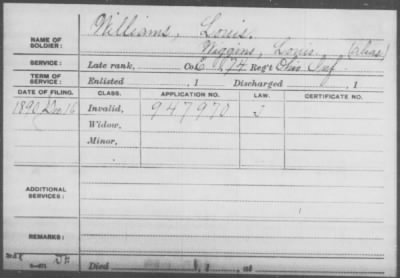 NAME OF SOLDIER: Williams, Louis.
Wiggins, Louis. (alias)
SERVICE: Late rank, Co. E, 174 Reg't Ohio Inf.
TERM OF SERVICE: Enlisted , 1 Discharged , 1
DATE OF FILING. CLASS. APPLICATION NO. LAW. CERTIFICATE NO.
1890 Dec 16 Invalid, 947970 J
Widow,
Minor,
ADDITIONAL SERVICES:
REMARKS:
Died , 1 , at